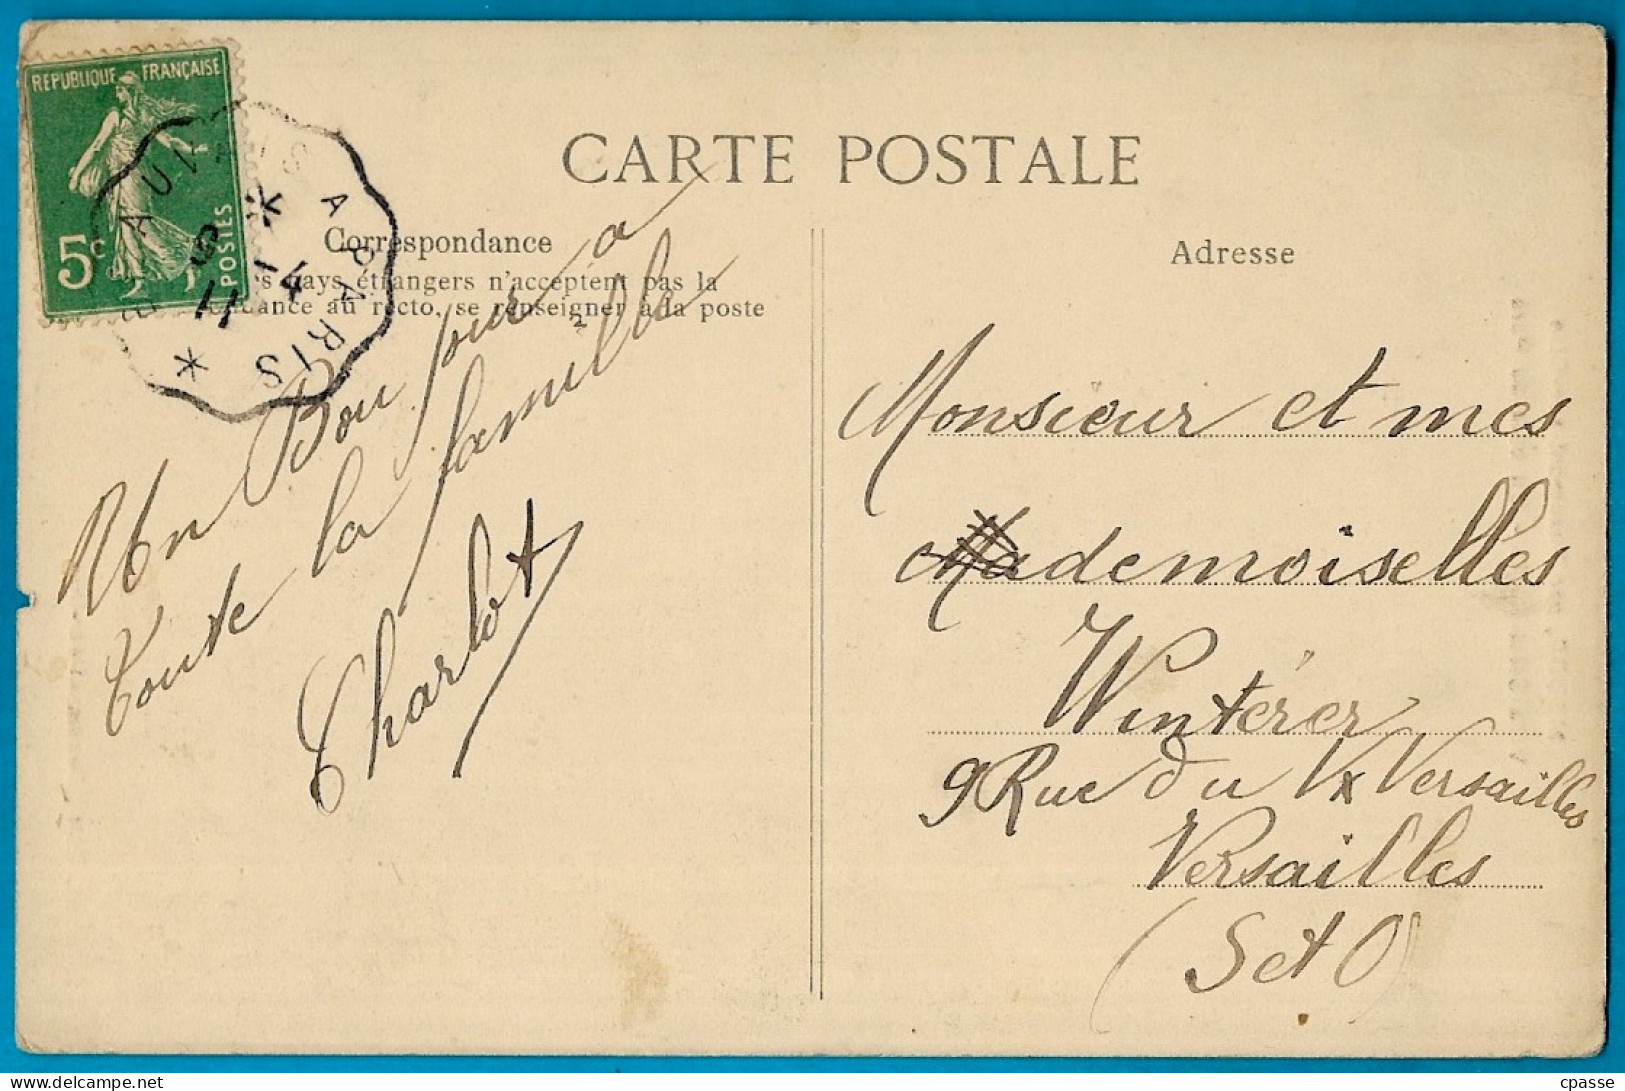 REPUBLIQUE FRANÇAISE
5c
POSTES
A PARIS
CARTE POSTALE
Correspondance
pays étrangers n'acceptent pas la
au recto, se renseigner à la poste
Un Bonjour a
toute la famille
Charlot
Adresse
Monsieur et mes
demoiselles
Wintérer
9 Rue du Vx Versailles
Versailles
(S et O)
cpasse